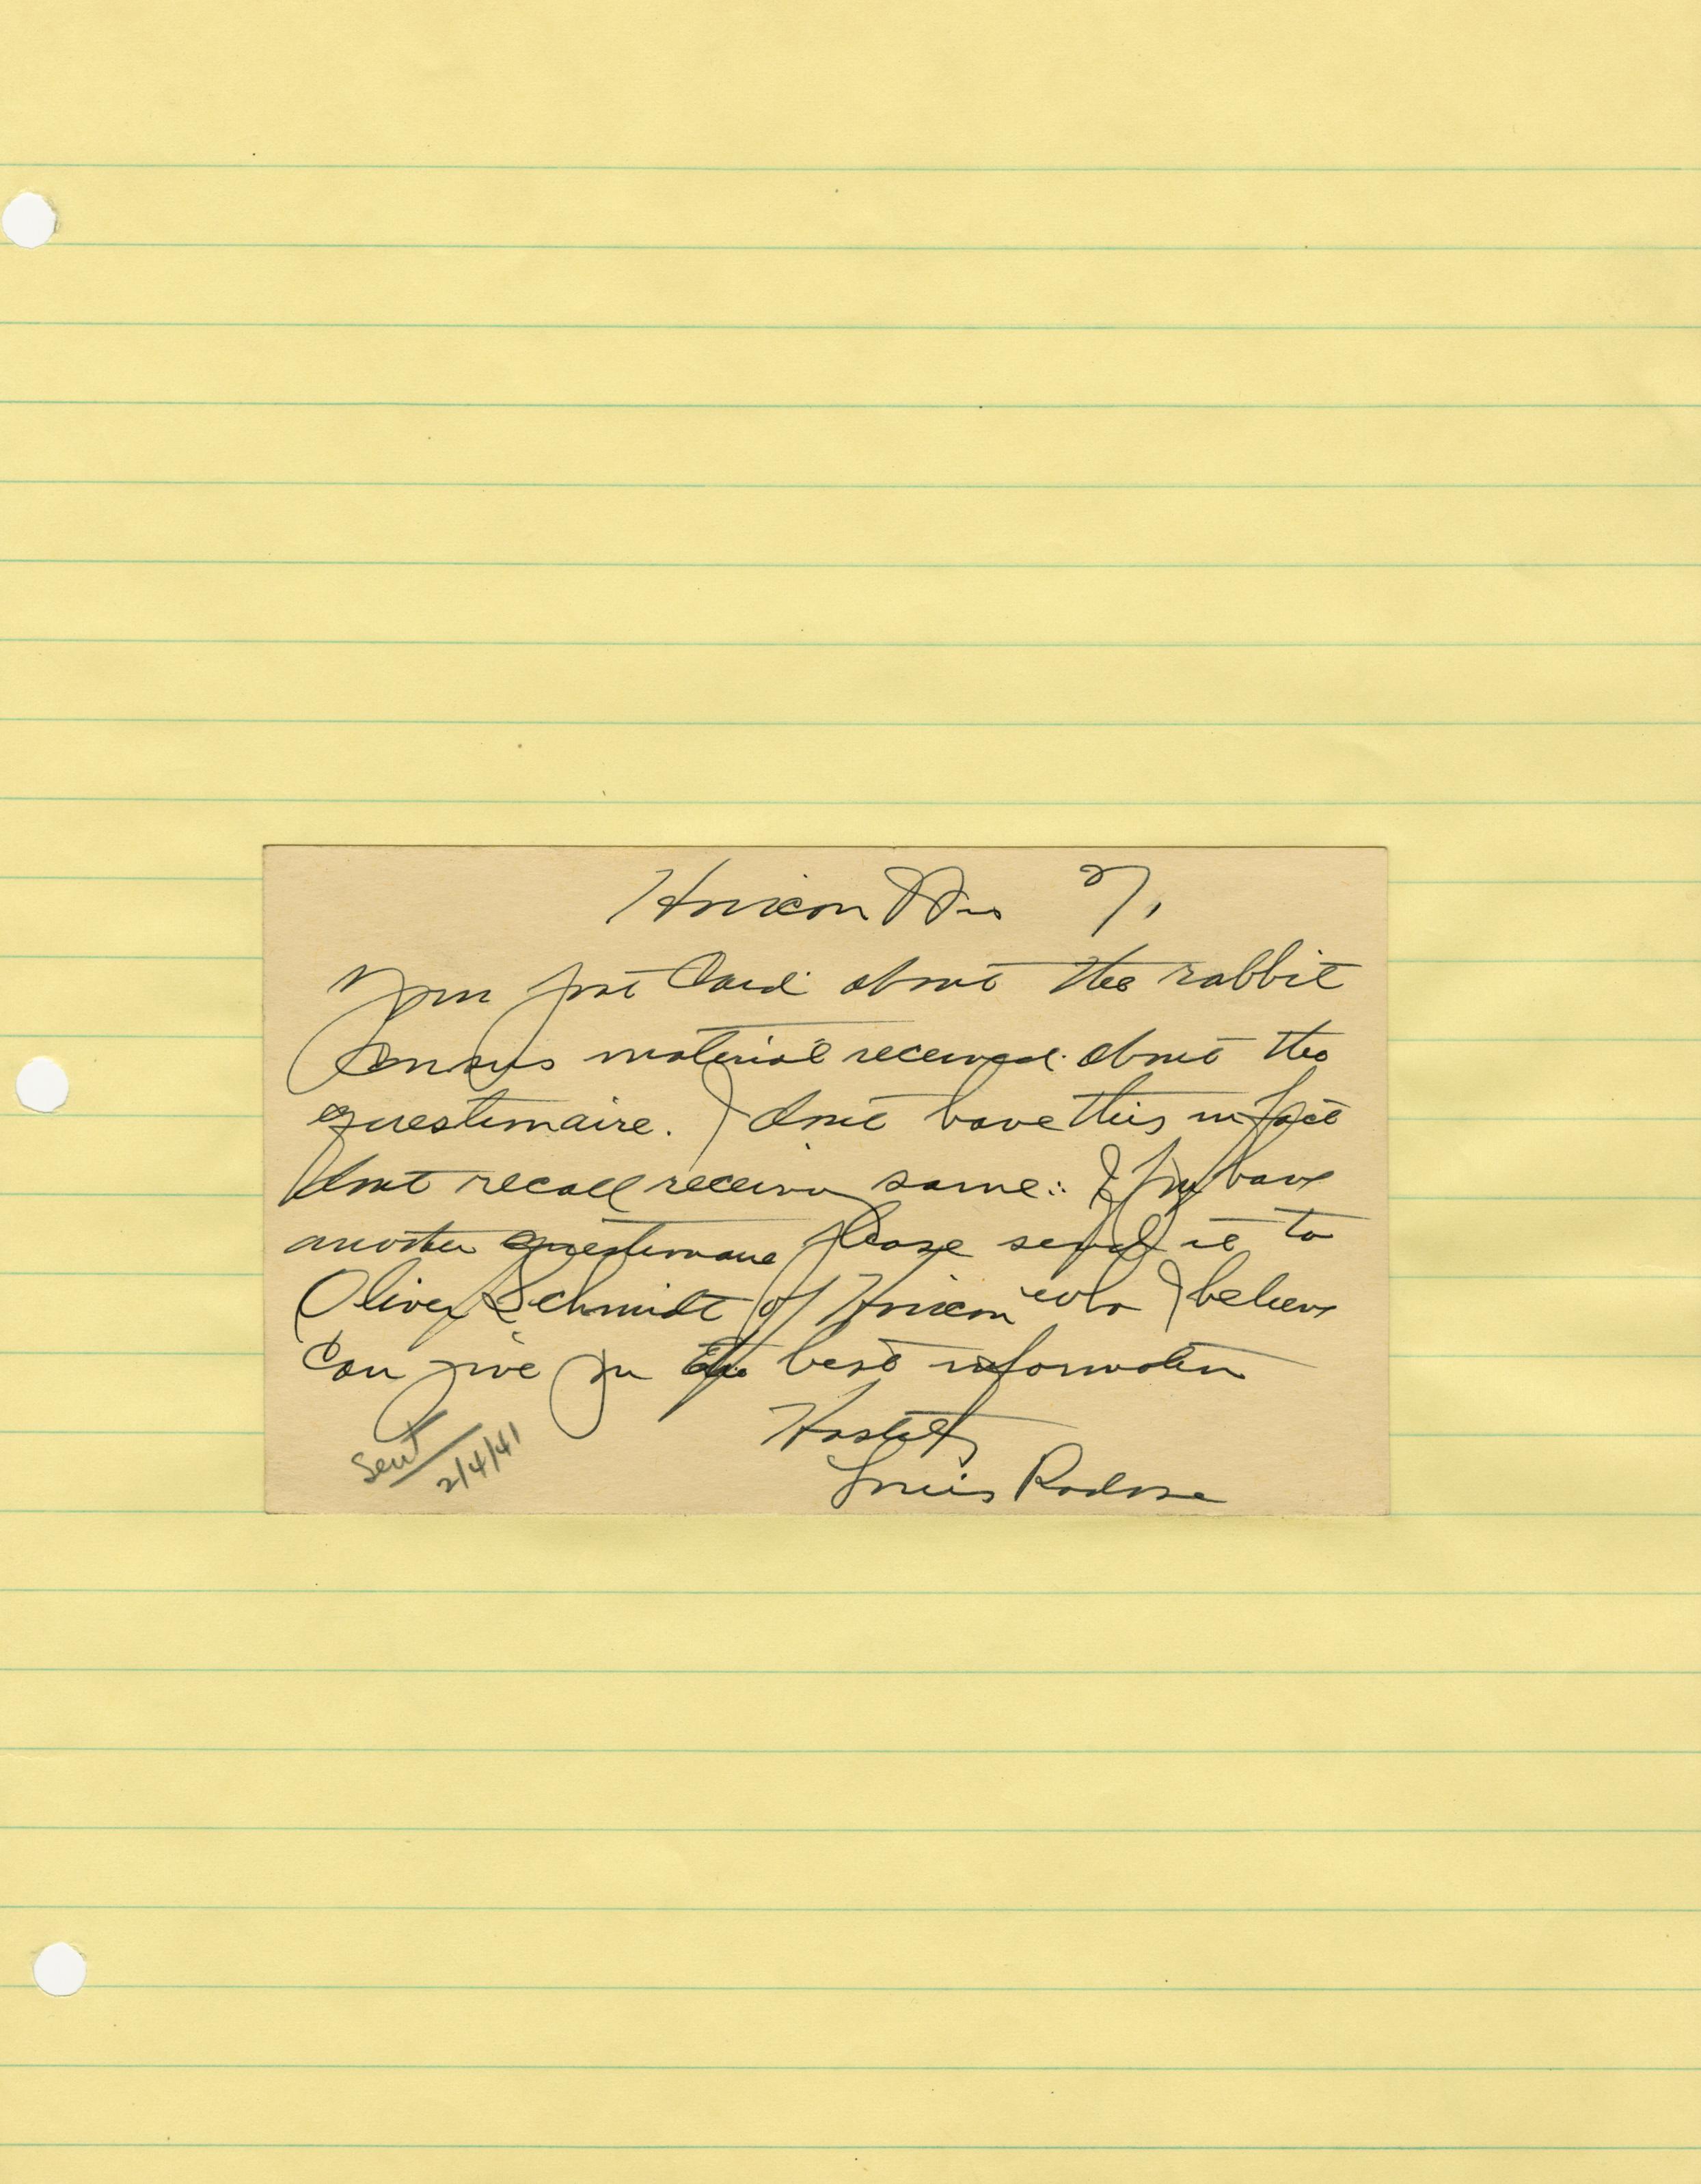 Horicon Wis 27,
Your post Card about the rabbit
Census material received about the
questionaire. I dont have this in fact
dont recall receiving same. If you have
another questionaire please send it to
Oliver Schmidt of Horicon who I believe
Can give you the best information
Hastily
Louis Radke
Sent
2/4/41